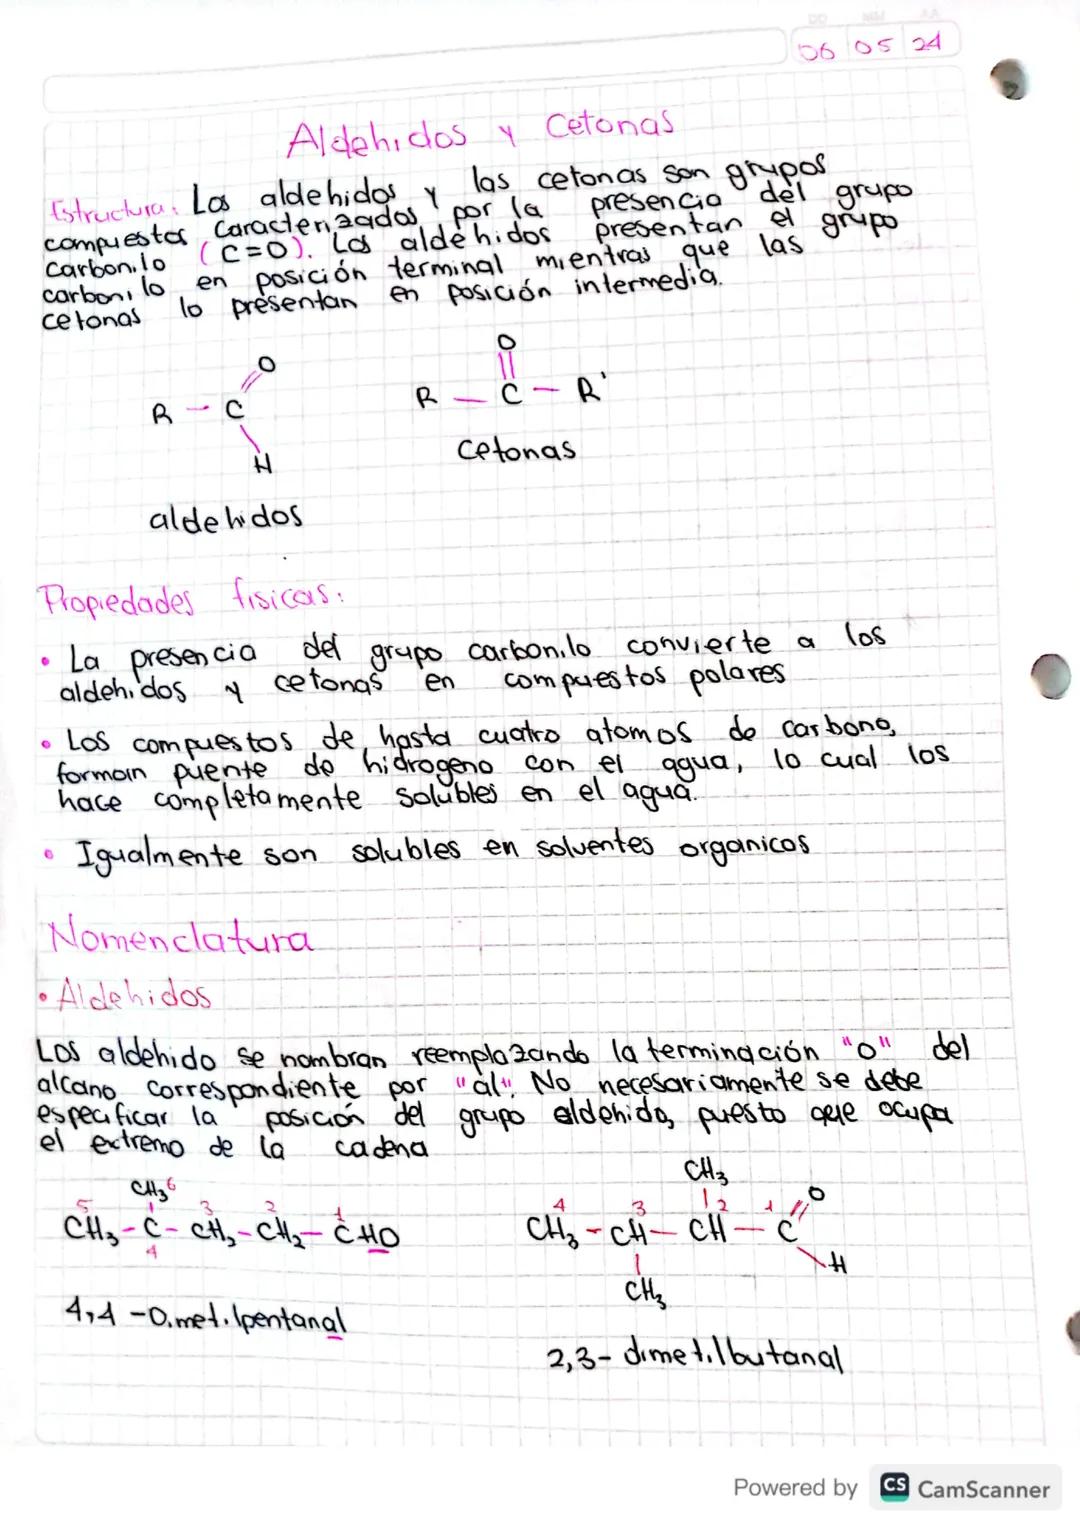 DD MM AA
06 05 24
Aldehidos y Cetonas
Estructura: Los aldehidos y las cetonas son grupos
compuestos caracterizados por la presencia del grupo
carbonilo (C=O). Los aldehidos presentan el grupo
carbonilo en posición terminal mientras que las
cetonas lo presentan en posición intermedia.
O
R - C
H
aldehidos
O
R - C - R'
cetonas
Propiedades fisicas:
• La presencia del grupo carbonilo convierte a los
aldehidos y cetonas en compuestos polares
• Los compuestos de hasta cuatro atomos de carbono,
forman puente de hidrogeno con el agua, lo cual los
hace completamente solubles en el agua.
• Igualmente son solubles en solventes organicos
Nomenclatura
• Aldehidos
Los aldehido se nombran reemplazando la terminación "o" del
alcano correspondiente por "al". No necesariamente se debe
especificar la posición del grupo aldehido, puesto que ocupa
el extremo de la cadena
CH3 6
5 3 2 1
CH3 - C - CH2 - CH2 - CHO
4
4,4 - Dimetilpentanal
CH3
4 3 2 1 O
CH3 - CH - CH - C
H
CH3
2,3- dimetilbutanal
Powered by CS CamScanner